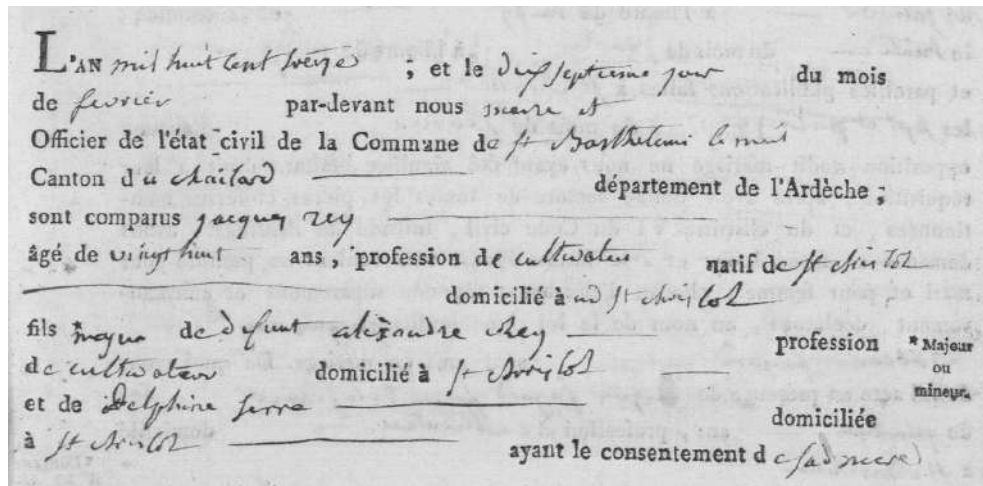 L'AN mil huit cent treize ; et le dixseptieme jour du mois
de fevrier par-devant nous maire et
Officier de l'état civil de la Commune de st Barthelemi le meil
Canton du cheilard département de l'Ardèche ;
sont comparus jacques rey
âgé de vingt huit ans, profession de cultivateur natif de st christol
domicilié à ud st christol
fils majeur de defunt alexandre rey profession * Majeur ou mineur.
de cultivateur domicilié à st christol
et de Delphine serre domiciliée
à st christol ayant le consentement de sad mere